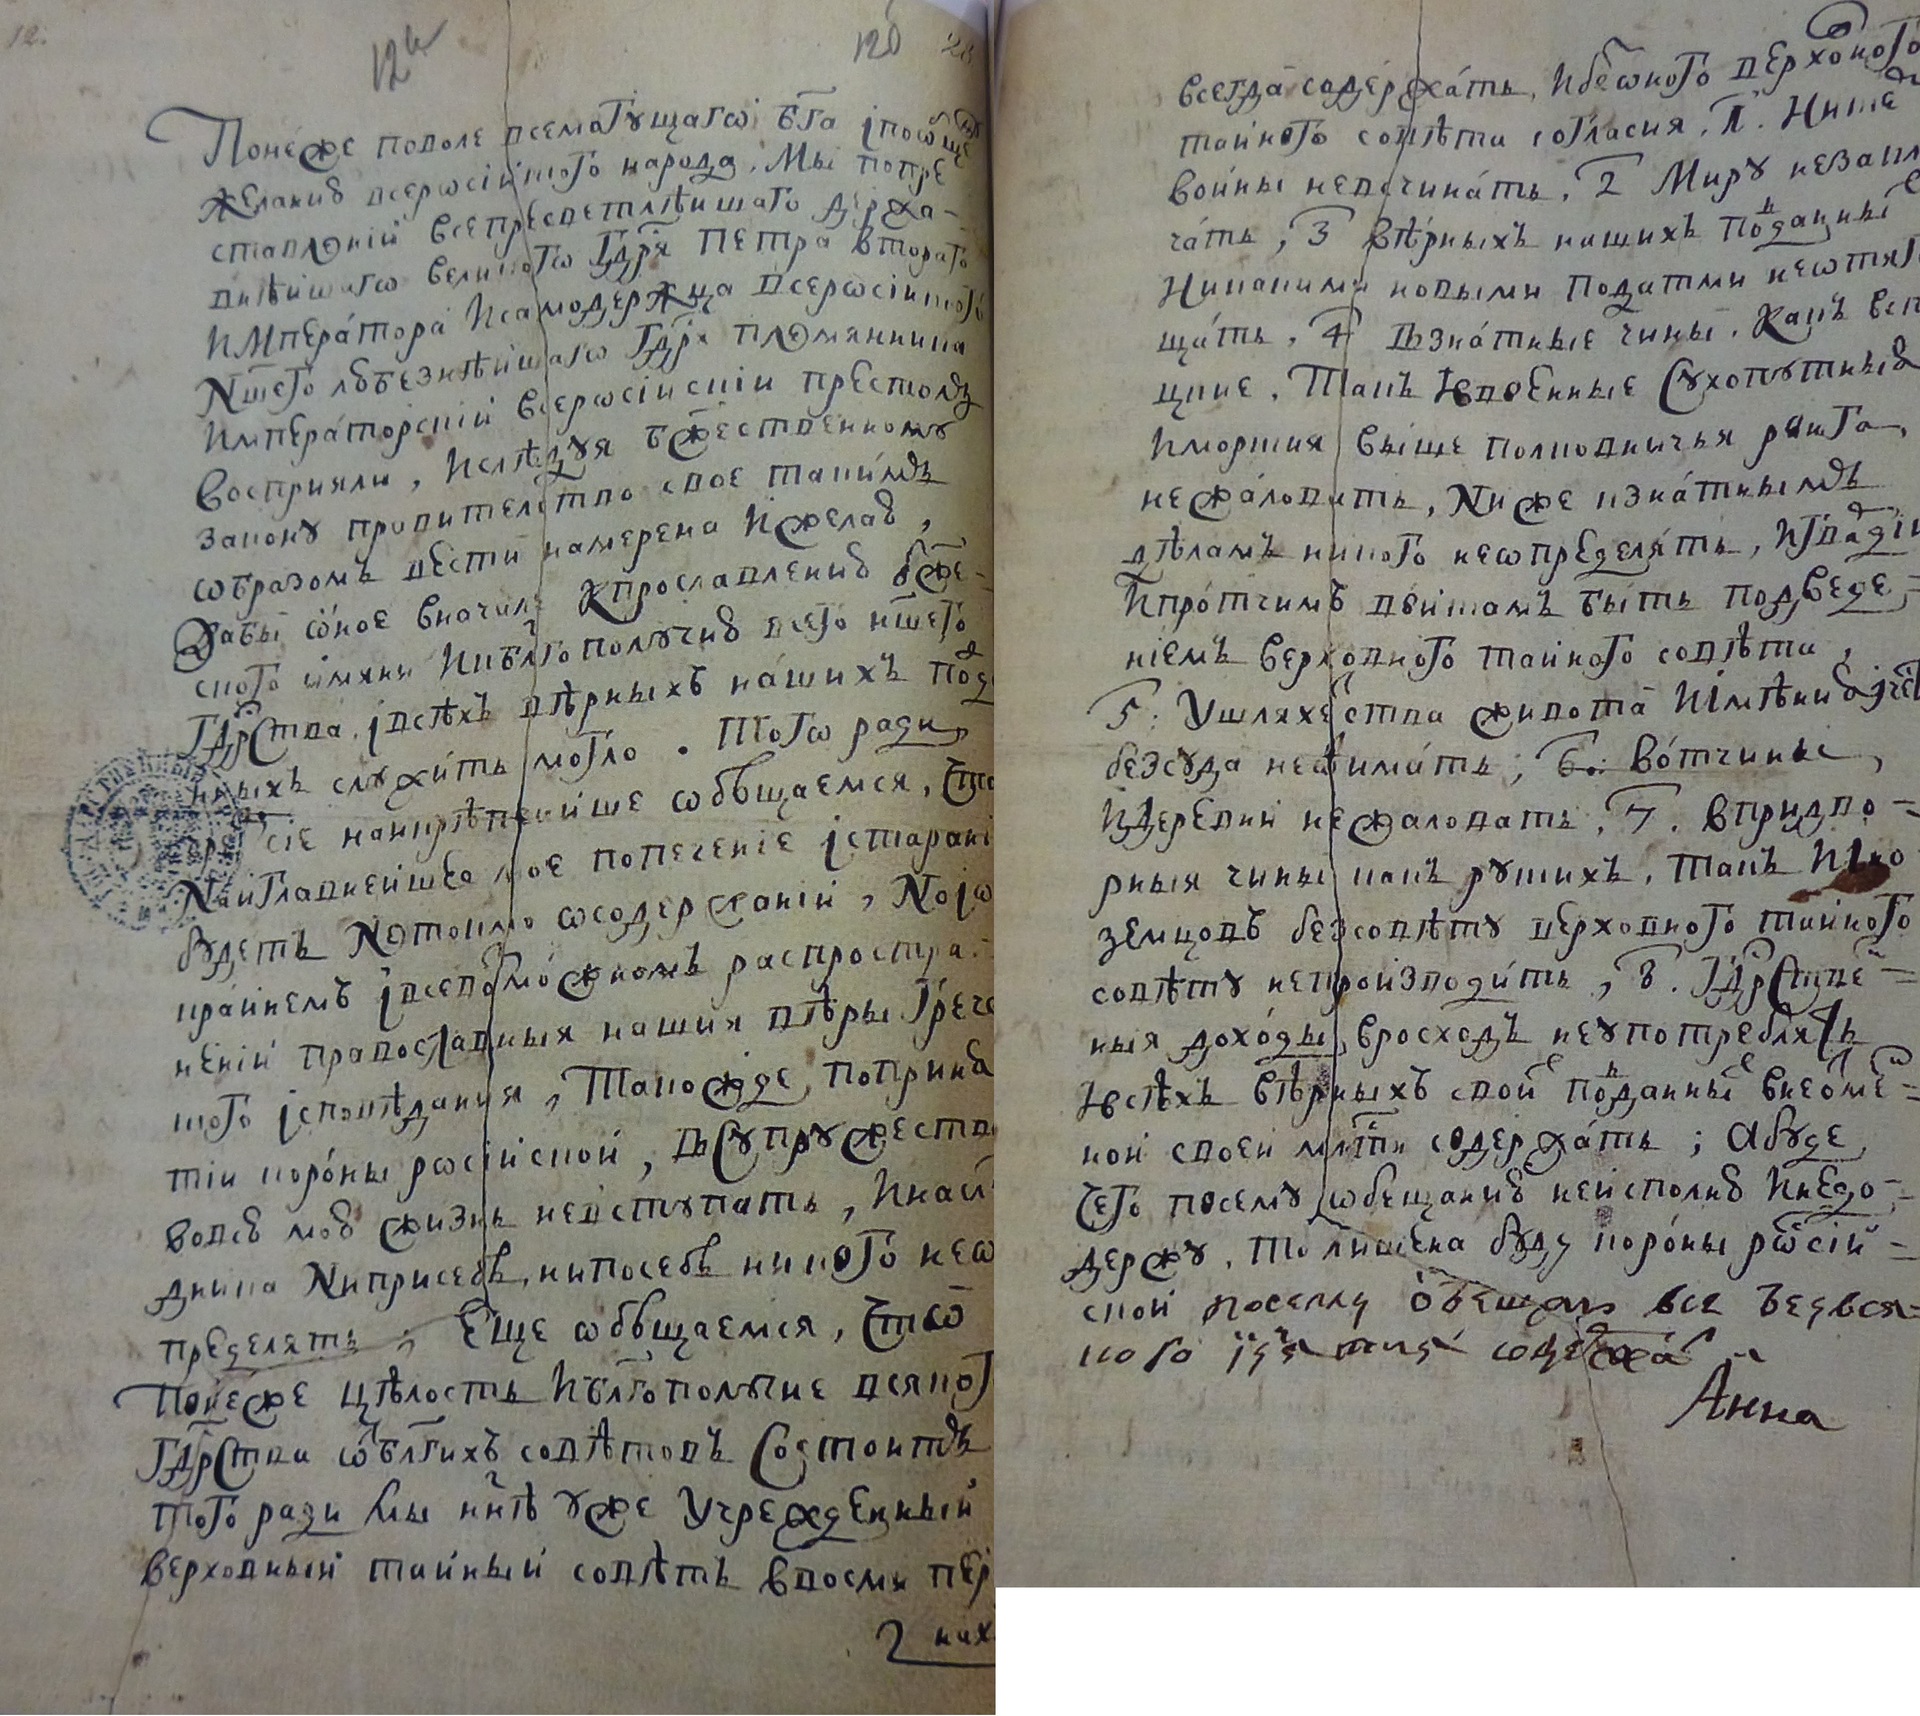 12.
12а
12б
Понеже поволе всемогущагѡ бга
желанию всеросійскогѡ народа. Мы попре
ставлении всепресветлѣишаго держа-
внѣишагѡ великогѡ гдря Петра второго
Императора Исамодержца всеросійского
Ншего любезнѣйшагѡ гдря племянника
Императорскій всеросійскій престолъ
восприяли, Ислѣдуя бжественному
закону правителство свое такимъ
ѡбразомъ вести намерена Ижелаю,
Дабы ѡное вначалѣ Кпрославлению бже-
ского имяни Икблгополучию всего ншего
гдрства. івсѣхъ вѣрныхъ нашихъ под
нныхъ служить могло. Тогѡ ради,
сіе наикрѣпчайше ѡбѣщаемся, что
Наиглавнейшее мое попечение істарані
будетъ Нетокмо ѡсодержаніи, Ноіѡ
крайнемъ івсевозможномъ распростра-
неніи православныя нашия вѣры гречес
кого ісповѣдания, Такожде, поприня
тіи короны російской, Всупружество
вовсю мою жизнь невступать, Инаслѣ
дникаНиприсебѣ, нипосебѣ никого неѡ
пределять, Еще ѡбѣщаемся, Чтѡ
Понеже цѣлость Иблгополучие всякого
Гдрства ѡтблгихъ совѣтовъ Состоитъ
того ради Мы ннѣ уже Учрежденный
верховный тайный совѣтъ ввосми пер
2 нахъ
всегда содержать, Ибезоного верховного
тайного совѣта согласия. 1. Нискем
войны невсчинать, 2 Миру незаклю
чать, 3 вѣрныхъ нашихъ подданных
Никакими новыми податми неѡтяго
щать, 4 Взнатные чины. Какъ вста
цкие, Такъ Ивоенные Сухопутныя
Иморския выше полковничья ранга,
нежаловать, Ниже кзнатнымъ
дѣламъ никого неѡпределять, Игвардіи
Ипротчимъ войскамъ быть подведе-
ніемъ верховного тайного совѣта,
5. Ушляхества живота Иімѣния ічести
безсуда неотимать, 6. вотчины,
Идеревни нежаловать, 7. впридво-
рныя чины какъ руских, Такъ Ино
земцовъ безсовѣту верховного тайного
совѣту непроизводить, 8. Гдрствен-
ныя доходы, вросходъ неупотреблять
Ивсѣхъ вѣрныхъ своих подданных внеотмен-
ной своей млсти содержать; Абуде
Чего посему ѡбещанию неисполню Инедо-
держу, То лишена буду короны росій-
ской посему обещаю все безвся-
кого содержа
Анна